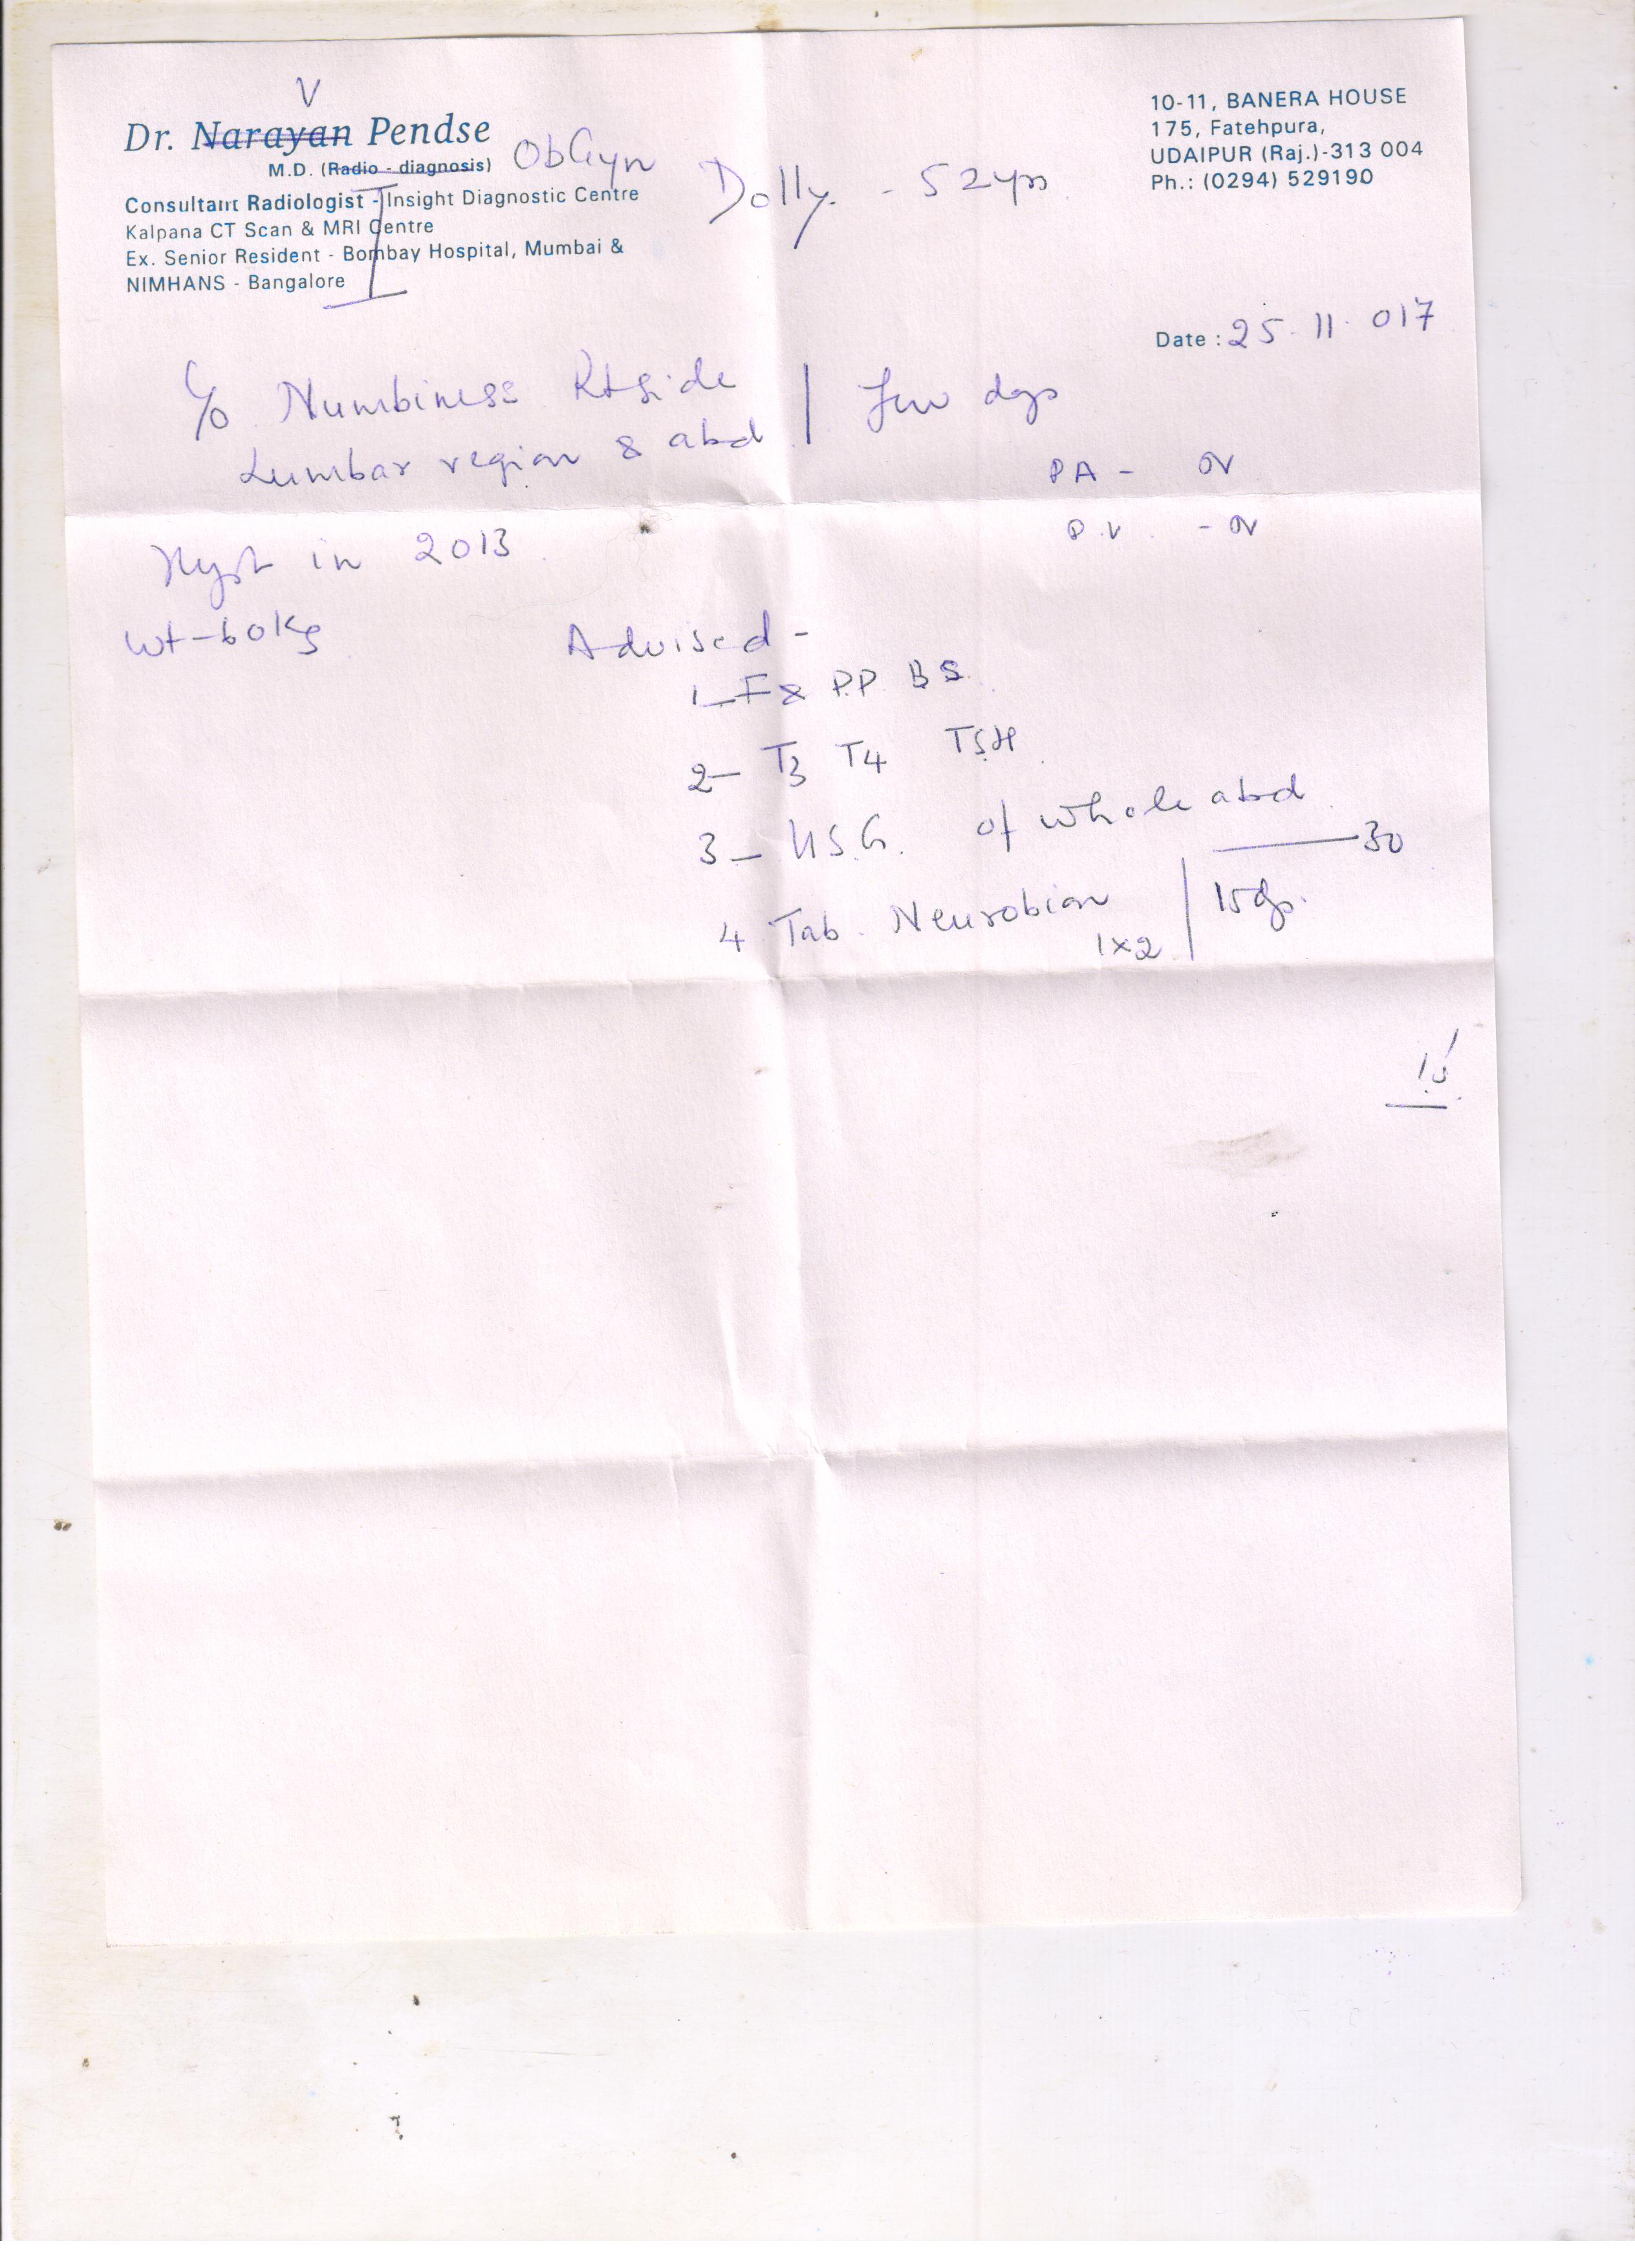 V
Dr. Narayan Pendse
M.D. (Radio - diagnosis) ObGyn
Consultant Radiologist - Insight Diagnostic Centre
Kalpana CT Scan & MRI Centre
Ex. Senior Resident - Bombay Hospital, Mumbai &
NIMHANS - Bangalore
10-11, BANERA HOUSE
175, Fatehpura,
UDAIPUR (Raj.)-313 004
Ph.: (0294) 529190
Dolly - 52yrs
Date : 25-11-017
C/o Numbiness Rt side | few days
Lumbar region & abd
PA -
P.V. -
Hyst in 2013
Wt-60Kg
Advised -
1- F & P.P. B S.
2- T3 T4 TSH
3- U.S.G. of whole abd
30
4 Tab. Neurobion | 15 dys.
1x2